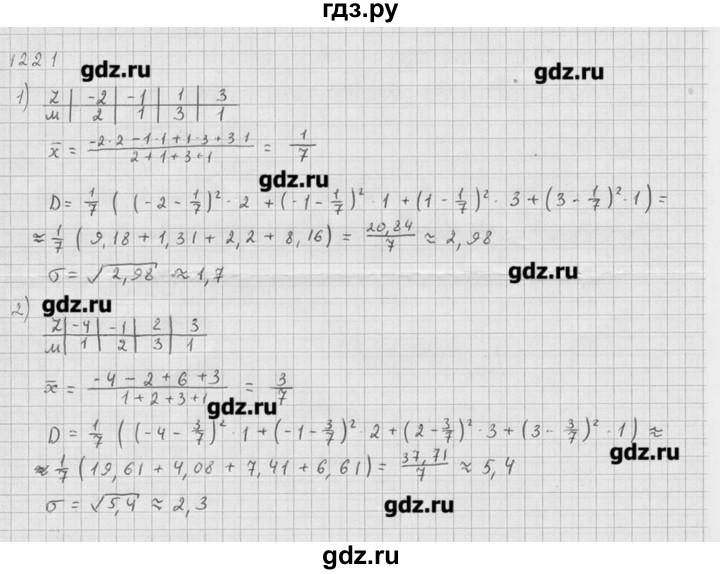 гдз.ру
1221
gdz.ru
gdz.ru
1) Z | -2 | -1 | 1 | 3
M | 2 | 1 | 3 | 1
x̄ = (-2·2 -1·1 + 1·3 + 3·1)/(2+1+3+1) = 1/7
gdz.ru
D = 1/7 ( (-2 - 1/7)²·2 + (-1 - 1/7)²·1 + (1 - 1/7)²·3 + (3 - 1/7)²·1) =
≈ 1/7 ( 9,18 + 1,31 + 2,2 + 8,16) = 20,84/7 ≈ 2,98
σ = √2,98 ≈ 1,7
gdz.ru
2) gdz.ru
Z | -4 | -1 | 2 | 3
M | 1 | 2 | 3 | 1
x̄ = (-4 - 2 + 6 + 3)/(1 + 2 + 3 + 1) = 3/7
gdz.ru
D = 1/7 ( (-4 - 3/7)²·1 + (-1 - 3/7)²·2 + (2 - 3/7)²·3 + (3 - 3/7)²·1) ≈
≈ 1/7 (19,61 + 4,08 + 7,41 + 6,61) = 37,71/7 ≈ 5,4
gdz.ru
σ = √5,4 ≈ 2,3
gdz.ru
gdz.ru